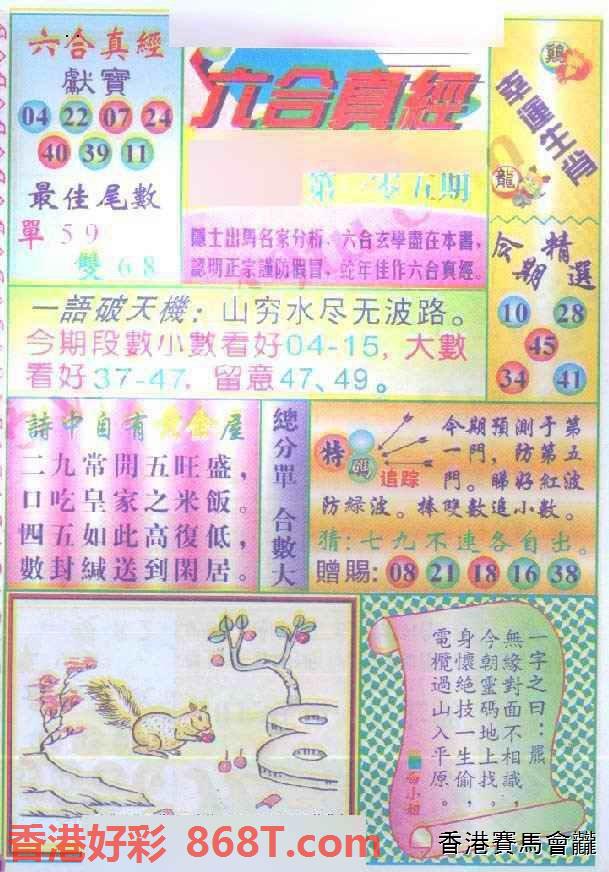 六合真經
獻寶
04 22 07 24
40 39 11
最佳尾數
單 59
雙 68
六合真經
第一零五期
隱士出馬名家分析、六合玄學盡在本書,
認明正宗謹防假冒, 蛇年佳作六合真經。
鷄
幸運生肖
龍
今期精選
10 28
45
34 41
一語破天機: 山穷水尽无波路。
今期段數小數看好04-15, 大數
看好37-47, 留意47、49。
詩中自有黃金屋
二九常開五旺盛,
口吃皇家之米飯。
四五如此高復低,
數封緘送到閑居。
總分單 合數大
特碼
追踪
今期預測于第
一門, 防第五
門。睇好紅波
防緑波。捧雙數追小數。
猜:七九不連各自出。
贈賜: 08 21 18 16 38
一字之曰:羆
無緣對面不相識,
今朝靈碼地上找,
身懷絶技一生偷,
電欖過山入平原。
小姐
香港好彩 868T.com
香港賽馬會